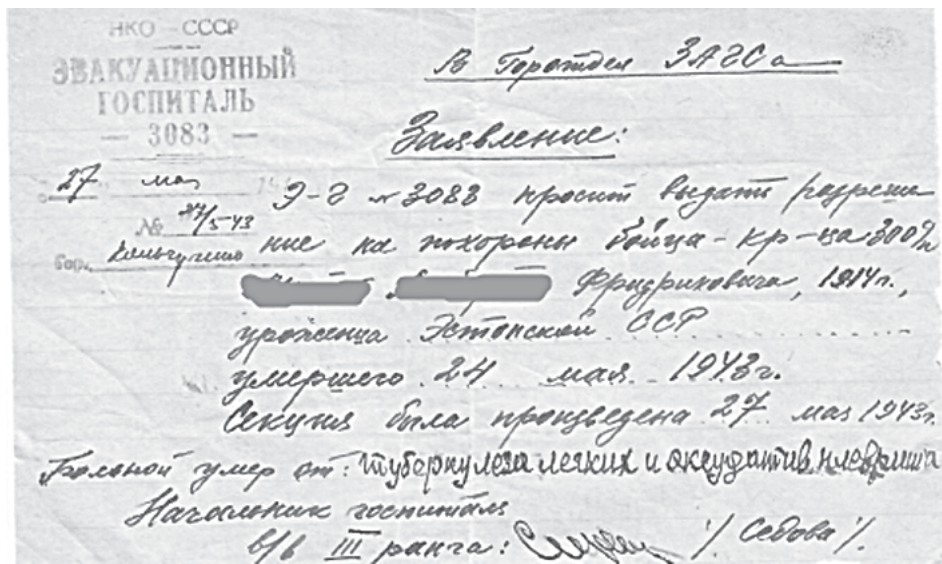 НКО – СССР
ЭВАКУАЦИОННЫЙ
ГОСПИТАЛЬ
— 3083 —
27 мая
№ 27/5-43
гор. Кольчугино
В Горотдел ЗАГСа
Заявление:
Э-Г №3083 просит выдать разреше
ние на похороны бойца-кр-ца 300
Фридриховича, 1914г.,
уроженца Эстонской ССР
умершего 24 мая 1943г.
Секция была произведена 27 мая 1943г.
Больной умер от: туберкулеза легких и эксудатив. плеврита
Начальник госпиталя
в/в III ранга: /Седова/.